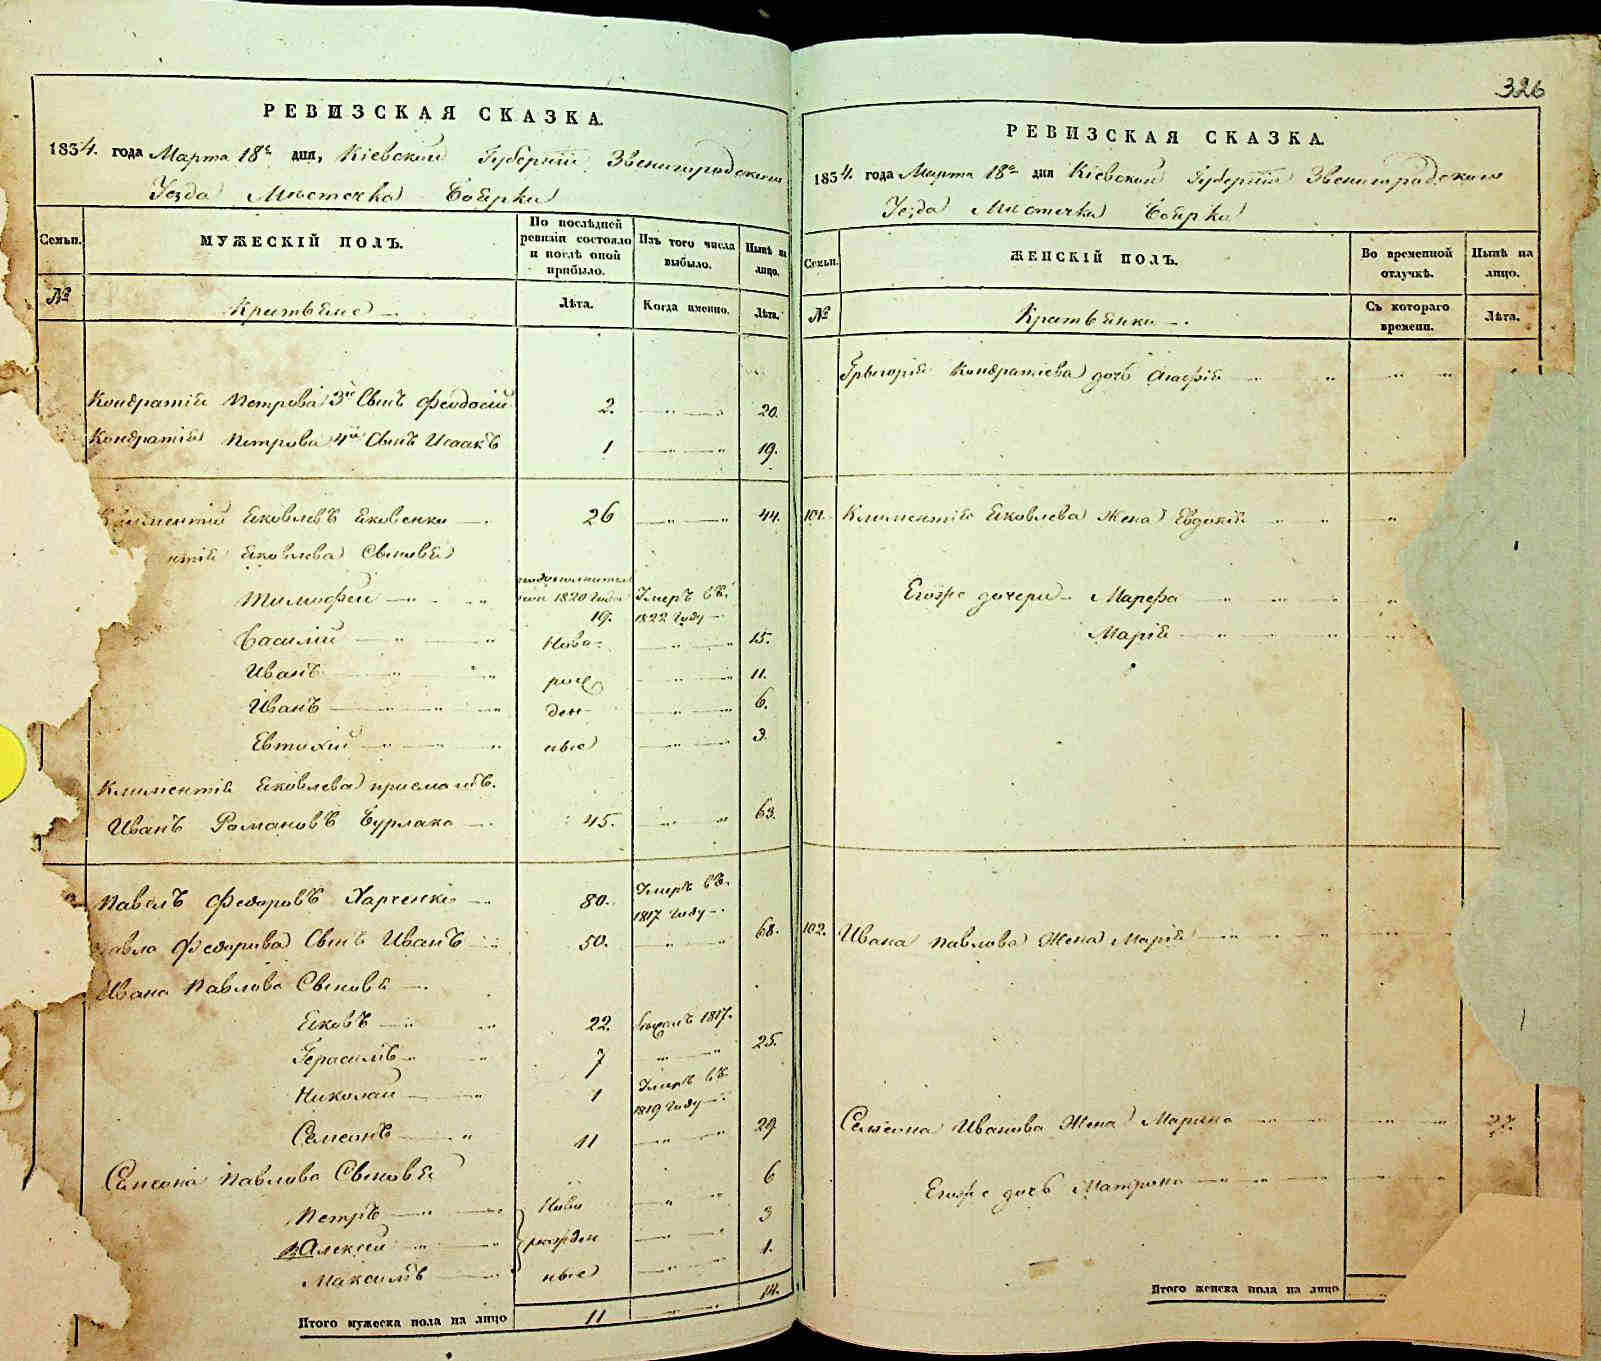 РЕВИЗСКАЯ СКАЗКА.
1834. года Марта 18го дня, Кіевской Губерніи Звенигородского
Уезда Мѣстечка Боярки
Семьи.
МУЖЕСКІЙ ПОЛЪ.
По послѣдней ревизіи состояло и послѣ оной прибыло.
Изъ того числа выбыло.
Нынѣ на лицо.
№
Крестьяне
Лѣта.
Когда именно.
Лѣта.
Кондратія Петрова 3й Сынъ Феодосій 2. 20.
Кондратія Петрова 4й Сынъ Исаакъ 1 19.
Климентій Яковлевъ Яковенко 26 44.
нтія Яковлева Сыновья
Тимофей
1820 года 19. Умеръ въ 1822 году
Василій Ново- 15.
Иванъ рож 11.
Иванъ ден 6.
Евтихій ные 3.
Климентія Яковлева приемышъ.
Иванъ Романовъ Бурлака 45. 63.
Павелъ Федоровъ Харченко 80. Умеръ въ 1817 году
авла Федорова Сынъ Иванъ 50. 68.
Ивана Павлова Сыновья
Яковъ 22. 1817.
Герасимъ 7 25.
Николай 1 Умеръ въ 1819 году
Самсонъ 11 29
Самсона Павлова Сыновья
Петръ Ново 6
Алексей рожден 3
Максимъ ные 1.
Итого мужеска пола на лицо 11 14.
326
РЕВИЗСКАЯ СКАЗКА.
1834. года Марта 18го дня Кіевской Губерніи Звенигородского
Уезда Мѣстечка Боярки
Семьи.
ЖЕНСКІЙ ПОЛЪ.
Во временной отлучкѣ.
Нынѣ на лицо.
№
Крестьянки
Съ котораго времени.
Лѣта.
Григорія Кондратіева дочь Агафія
101. Климентія Яковлева Жена Евдокія
Егоже дочери Марфа
Марія
102. Ивана Павлова Жена Марія
Самсона Иванова Жена Марина 27.
Егоже дочь Матрона
Итого женска пола на лицо